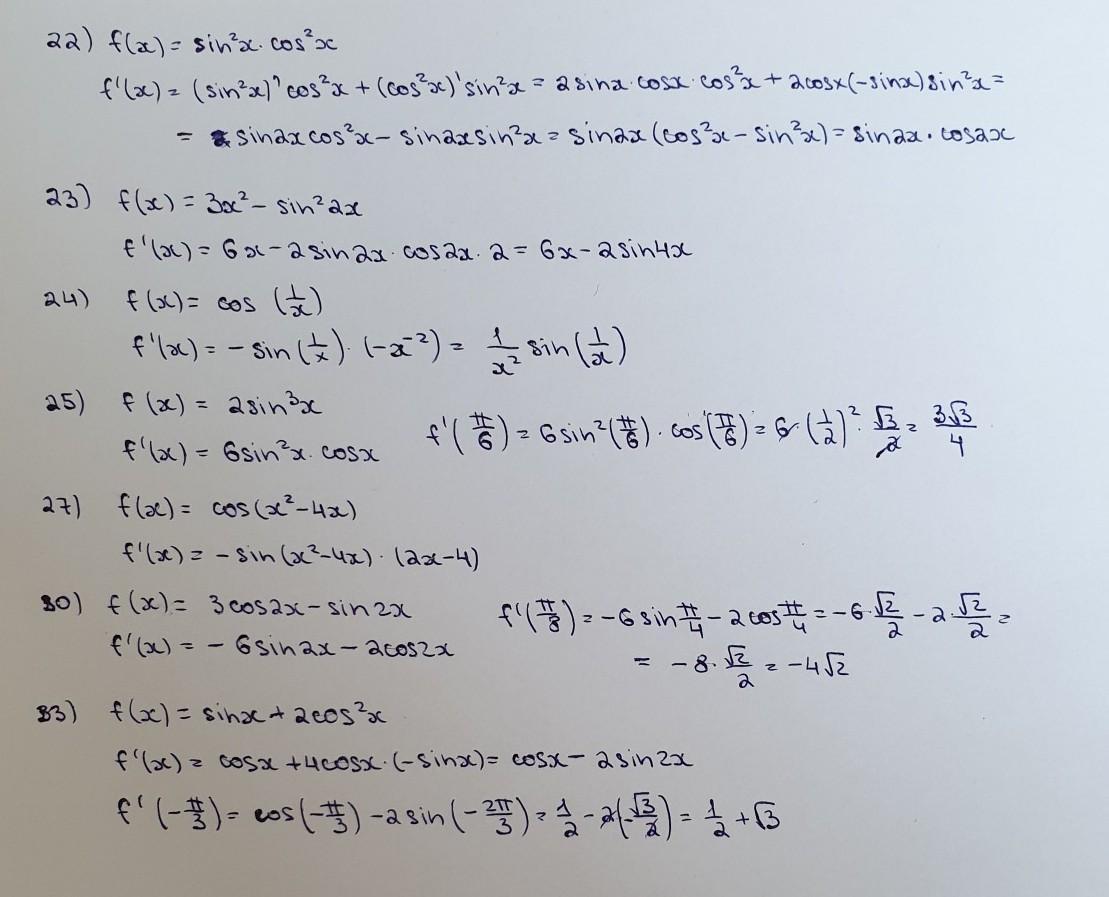 22) f(x) = sin²x · cos²x
f'(x) = (sin²x)' cos²x + (cos²x)' sin²x = 2sinx · cosx · cos²x + 2cosx(-sinx)sin²x =
= sin2x cos²x - sin2x sin²x = sin2x (cos²x - sin²x) = sin2x · cos2x
23) f(x) = 3x² - sin²2x
f'(x) = 6x - 2sin2x · cos2x · 2 = 6x - 2sin4x
24) f(x) = cos (1/x)
f'(x) = -sin(1/x) · (-x⁻²) = 1/x² sin(1/x)
25) f(x) = 2sin³x
f'(x) = 6sin²x · cosx f'(π/6) = 6sin²(π/6) · cos(π/6) = 6 · (1/2)² · √3/2 = 3√3/4
27) f(x) = cos(x²-4x)
f'(x) = -sin(x²-4x) · (2x-4)
30) f(x) = 3cos2x - sin2x f'(π/8) = -6sin π/4 - 2cos π/4 = -6 · √2/2 - 2 · √2/2 =
f'(x) = -6sin2x - 2cos2x = -8 · √2/2 = -4√2
33) f(x) = sinx + 2cos²x
f'(x) = cosx + 4cosx · (-sinx) = cosx - 2sin2x
f'(-π/3) = cos(-π/3) - 2sin(-2π/3) = 1/2 - 2(-√3/2) = 1/2 + √3